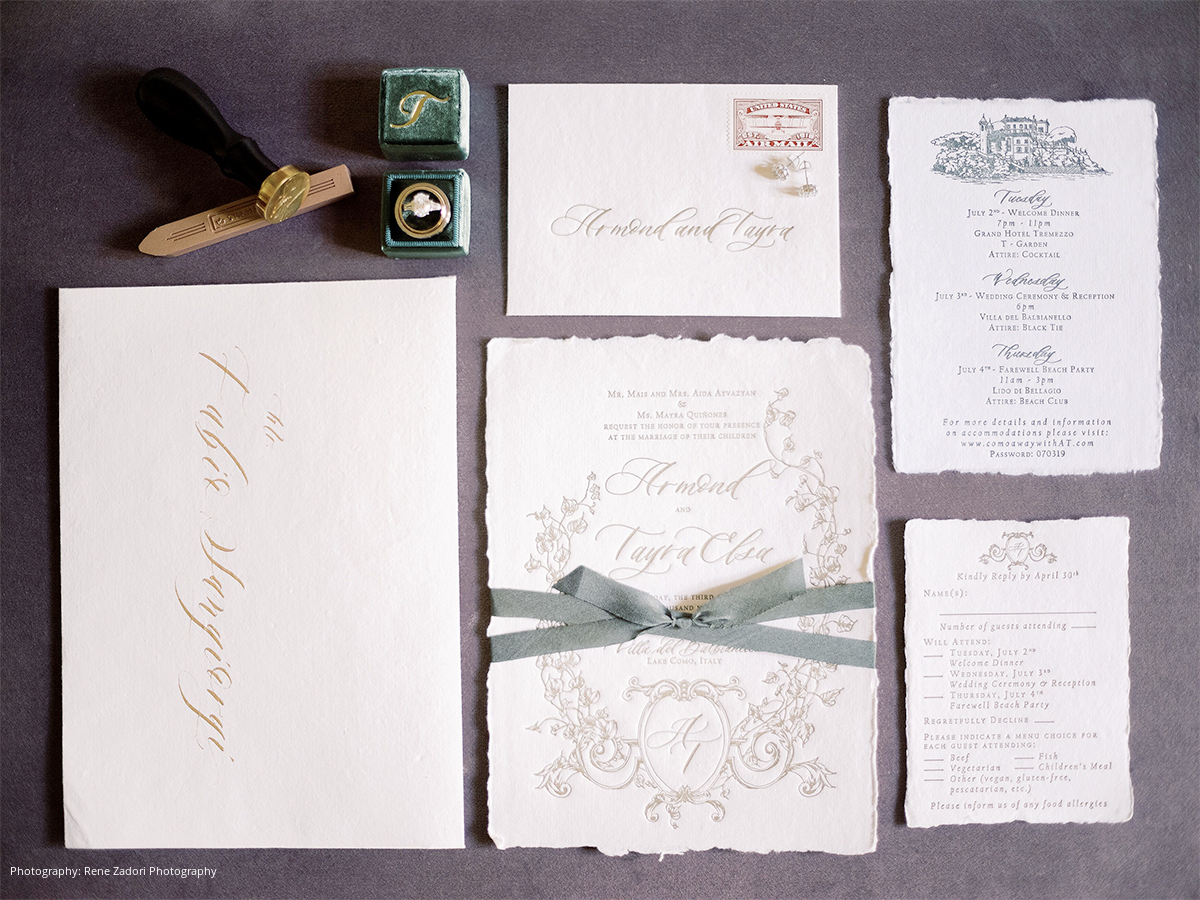 T
UNITED STATES
AIR MAIL
Armond and Tayra
Tuesday
July 2nd - Welcome Dinner
7pm - 11pm
Grand Hotel Tremezzo
T - Garden
Attire: Cocktail
Wednesday
July 3rd - Wedding Ceremony & Reception
6pm
Villa del Balbianello
Attire: Black Tie
Thursday
July 4th - Farewell Beach Party
11am - 3pm
Lido di Bellagio
Attire: Beach Club
For more details and information
on accommodations please visit:
www.comoawaywithAT.com
Password: 070319
The
Mr. Mais and Mrs. Aida Ayvazyan
&
Ms. Mayra Quiñones
request the honor of your presence
at the marriage of their children
Armond
and
Tayra Elsa
the third
Villa del Balbianello
Lake Como, Italy
AT
AT
Kindly Reply by April 30th
Name(s):
Number of guests attending
Will Attend:
Tuesday, July 2nd
Welcome Dinner
Wednesday, July 3rd
Wedding Ceremony & Reception
Thursday, July 4th
Farewell Beach Party
Regretfully Decline
Please indicate a menu choice for
each guest attending:
Beef Fish
Vegetarian Children's Meal
Other (vegan, gluten-free,
pescatarian, etc.)
Please inform us of any food allergies
Photography: Rene Zadori Photography